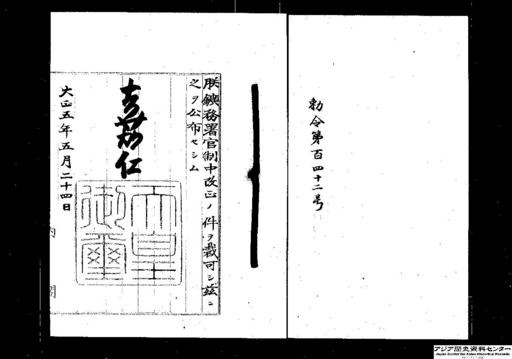 勅令第百四十二号
朕鑛務署官制中改正ノ件ヲ裁可シ玆ニ
之ヲ公布セシム
嘉仁
天皇御璽
大正五年五月二十四日
内閣
アジア歴史資料センター
Japan Center for Asian Historical Records